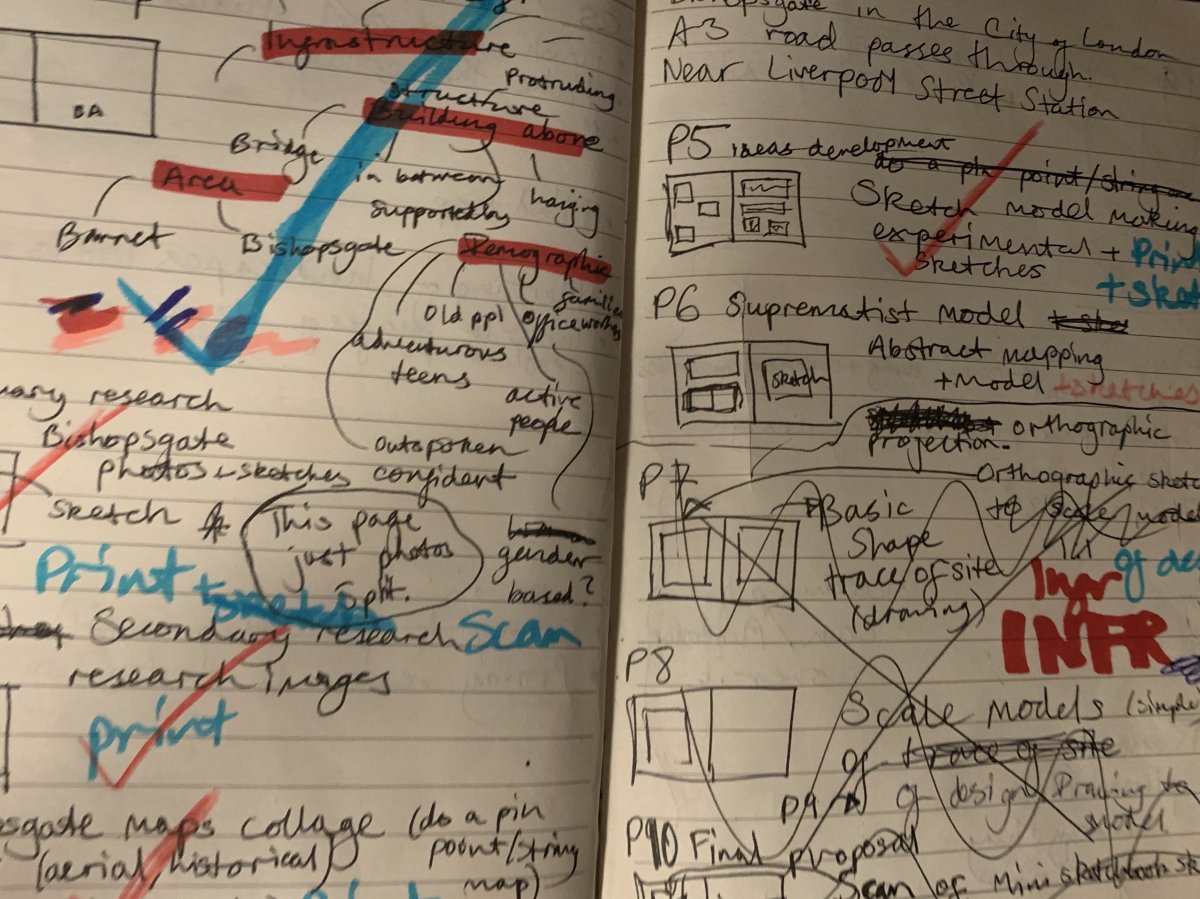 Infrastructure
Protruding
Structure
Building above
BA
Bridge
in between
hanging
Area
supported by
Barnet
Bishopsgate
Demographic
Old ppl
families
office workers
adventurous
teens
active
people
outspoken
confident
research
Bishopsgate
photos + sketches
Sketch
This page
just photos
Split.
gender
based?
Print +
Scan
Secondary research
research images
print
maps collage (do a pin
(aerial, historical) point/string
map)
in the City of London
A3 road passes through.
Near Liverpool Street Station
P5 ideas development
do a pin point/string
Sketch model making
experimental +
Sketches
P6 Suprematist Model
Abstract mapping
+ Model + sketches
sketch
orthographic
projection.
P7
Orthographic
to scale model
Basic
Shape
trace of site
(drawing)
of
INFR
P8
Scale models (simple
of trace of site
P9 of design Drawing to
model
P10 Final proposal
Scan of mini sketchbook